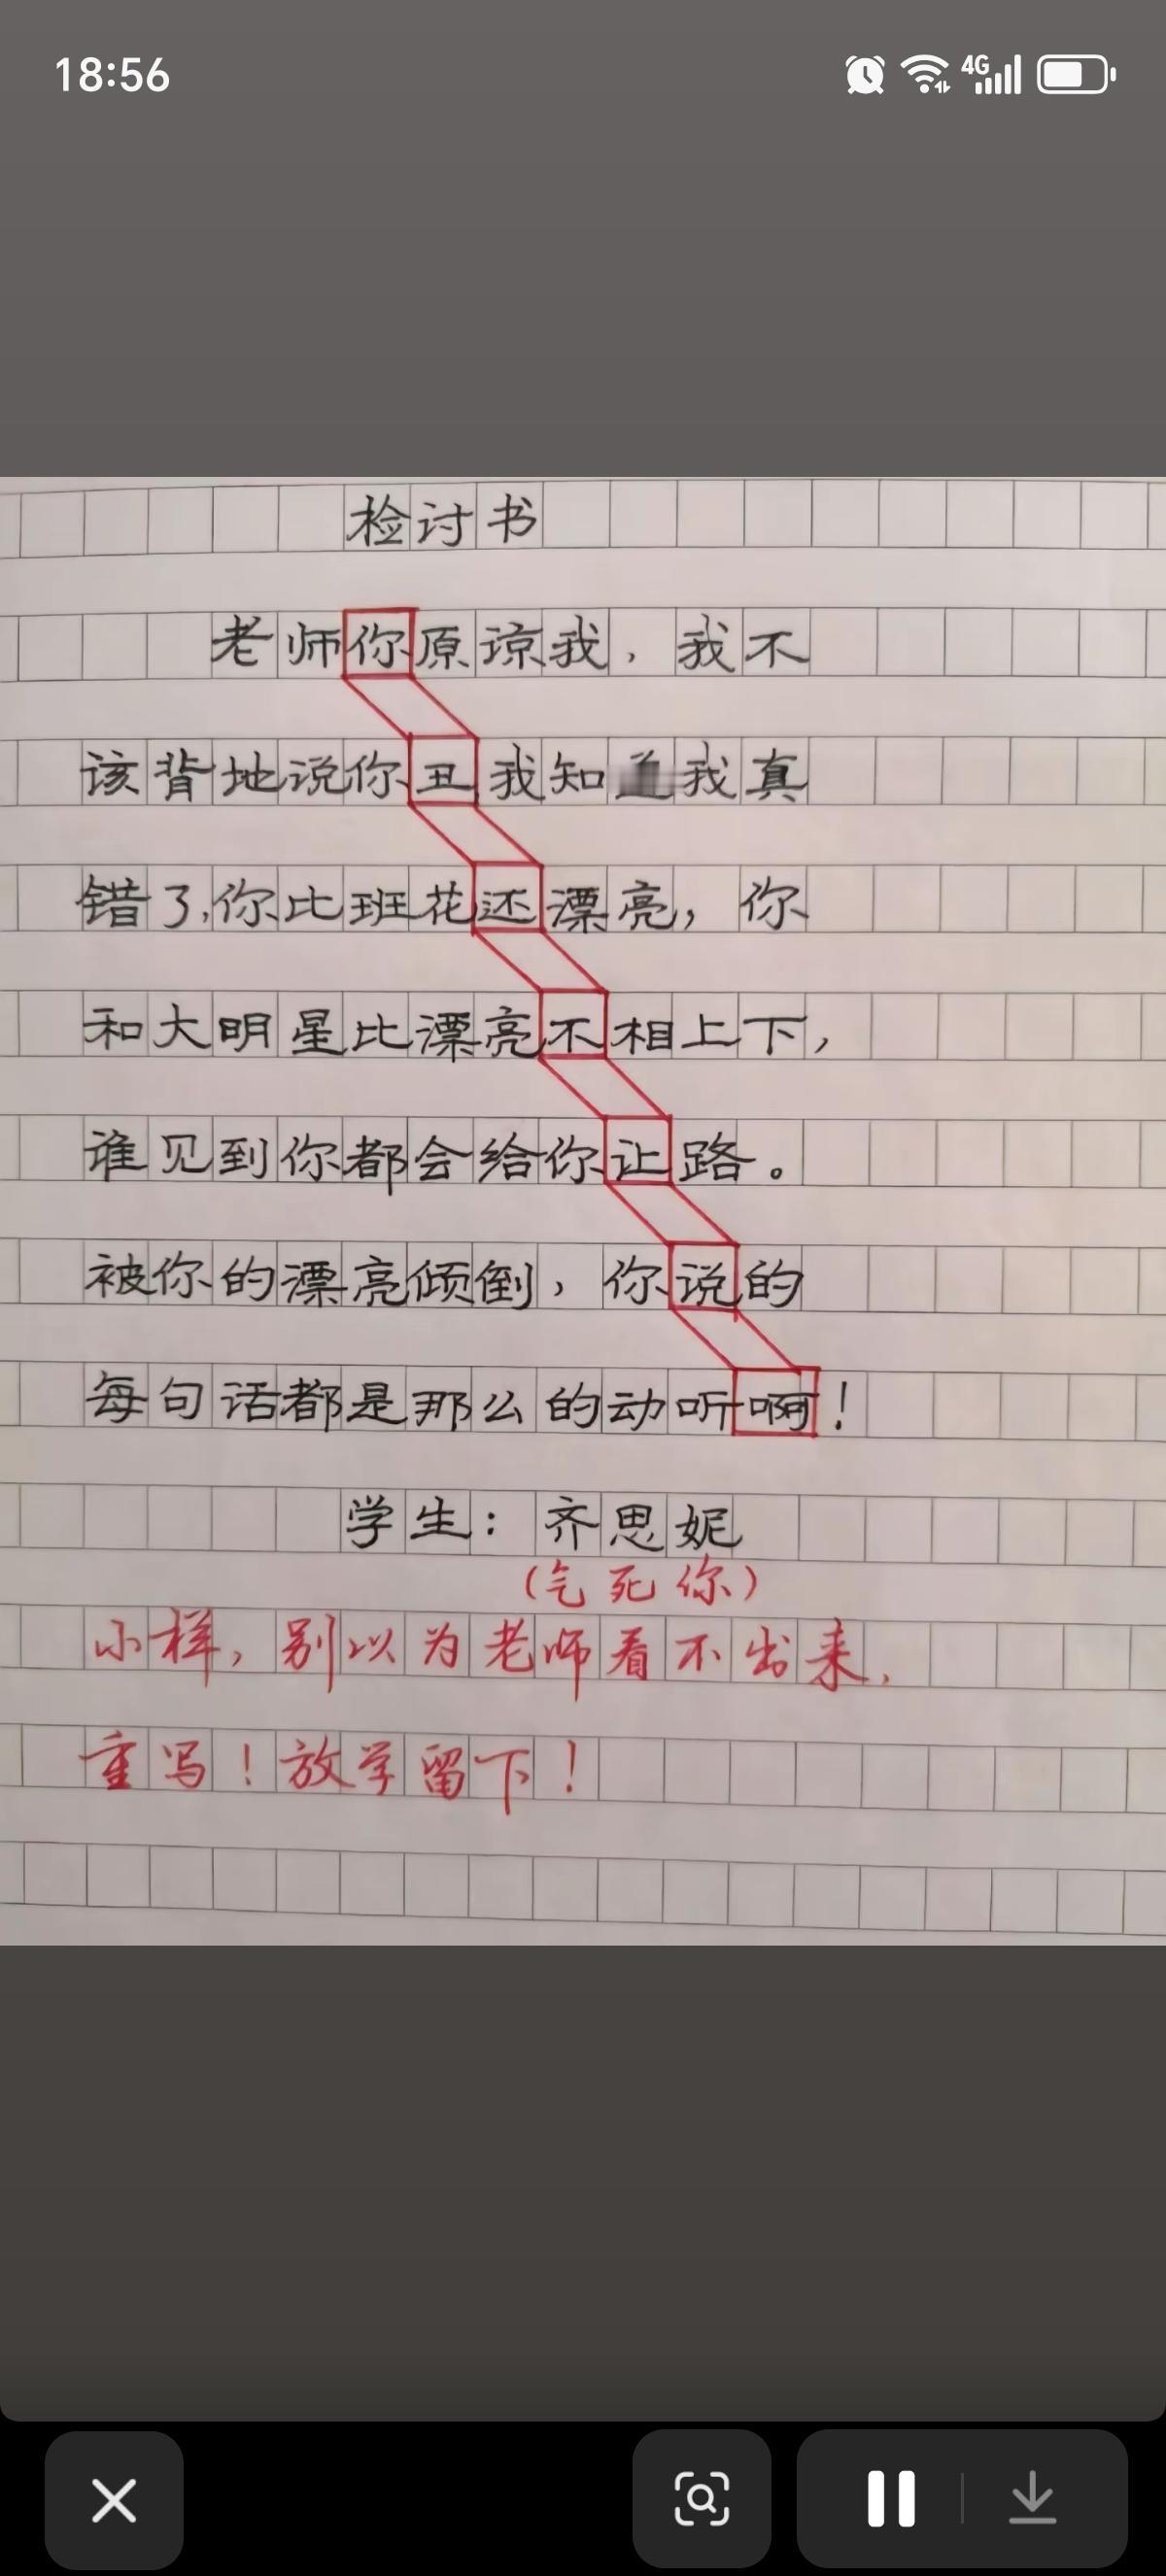 18:56
4G
检讨书
老师你原谅我，我不
该背地说你丑我知道我真
错了,你比班花还漂亮，你
和大明星比漂亮不相上下，
谁见到你都会给你让路。
被你的漂亮倾倒，你说的
每句话都是那么的动听啊！
学生：齐思妮
（气死你）
小样，别以为老师看不出来，
重写！放学留下！